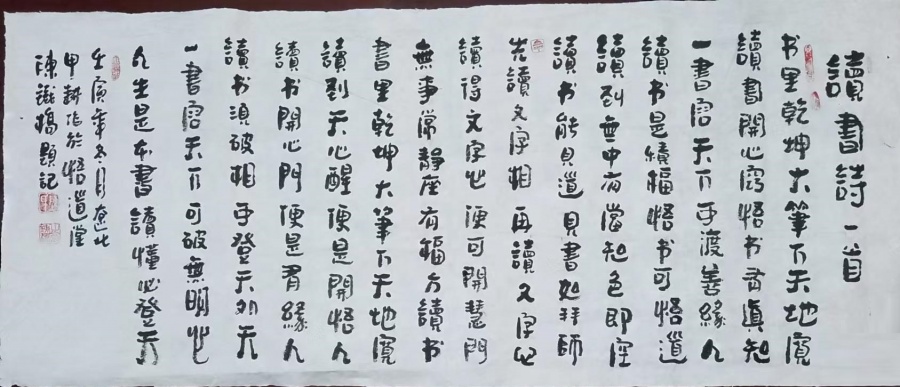 讀書詩一首
书里乾坤大筆下天地寬
讀書開心窍悟书者真知
一書容天下可渡善缘人
讀书是續福悟书可悟道
讀到無中有當知色即空
讀书能見道見書如拜师
先讀文字相再讀文字心
讀得文字心便可開慧門
無事常静座有福方讀书
書里乾坤大筆下天地寬
讀到天心醒便是開悟人
讀书開心門便是有緣人
讀书须破相可登天外天
一書容天下可破無明心
人生是本書讀懂必登天
壬寅年冬月辽北
甲耕作於悟道堂
陳鐵楊題記